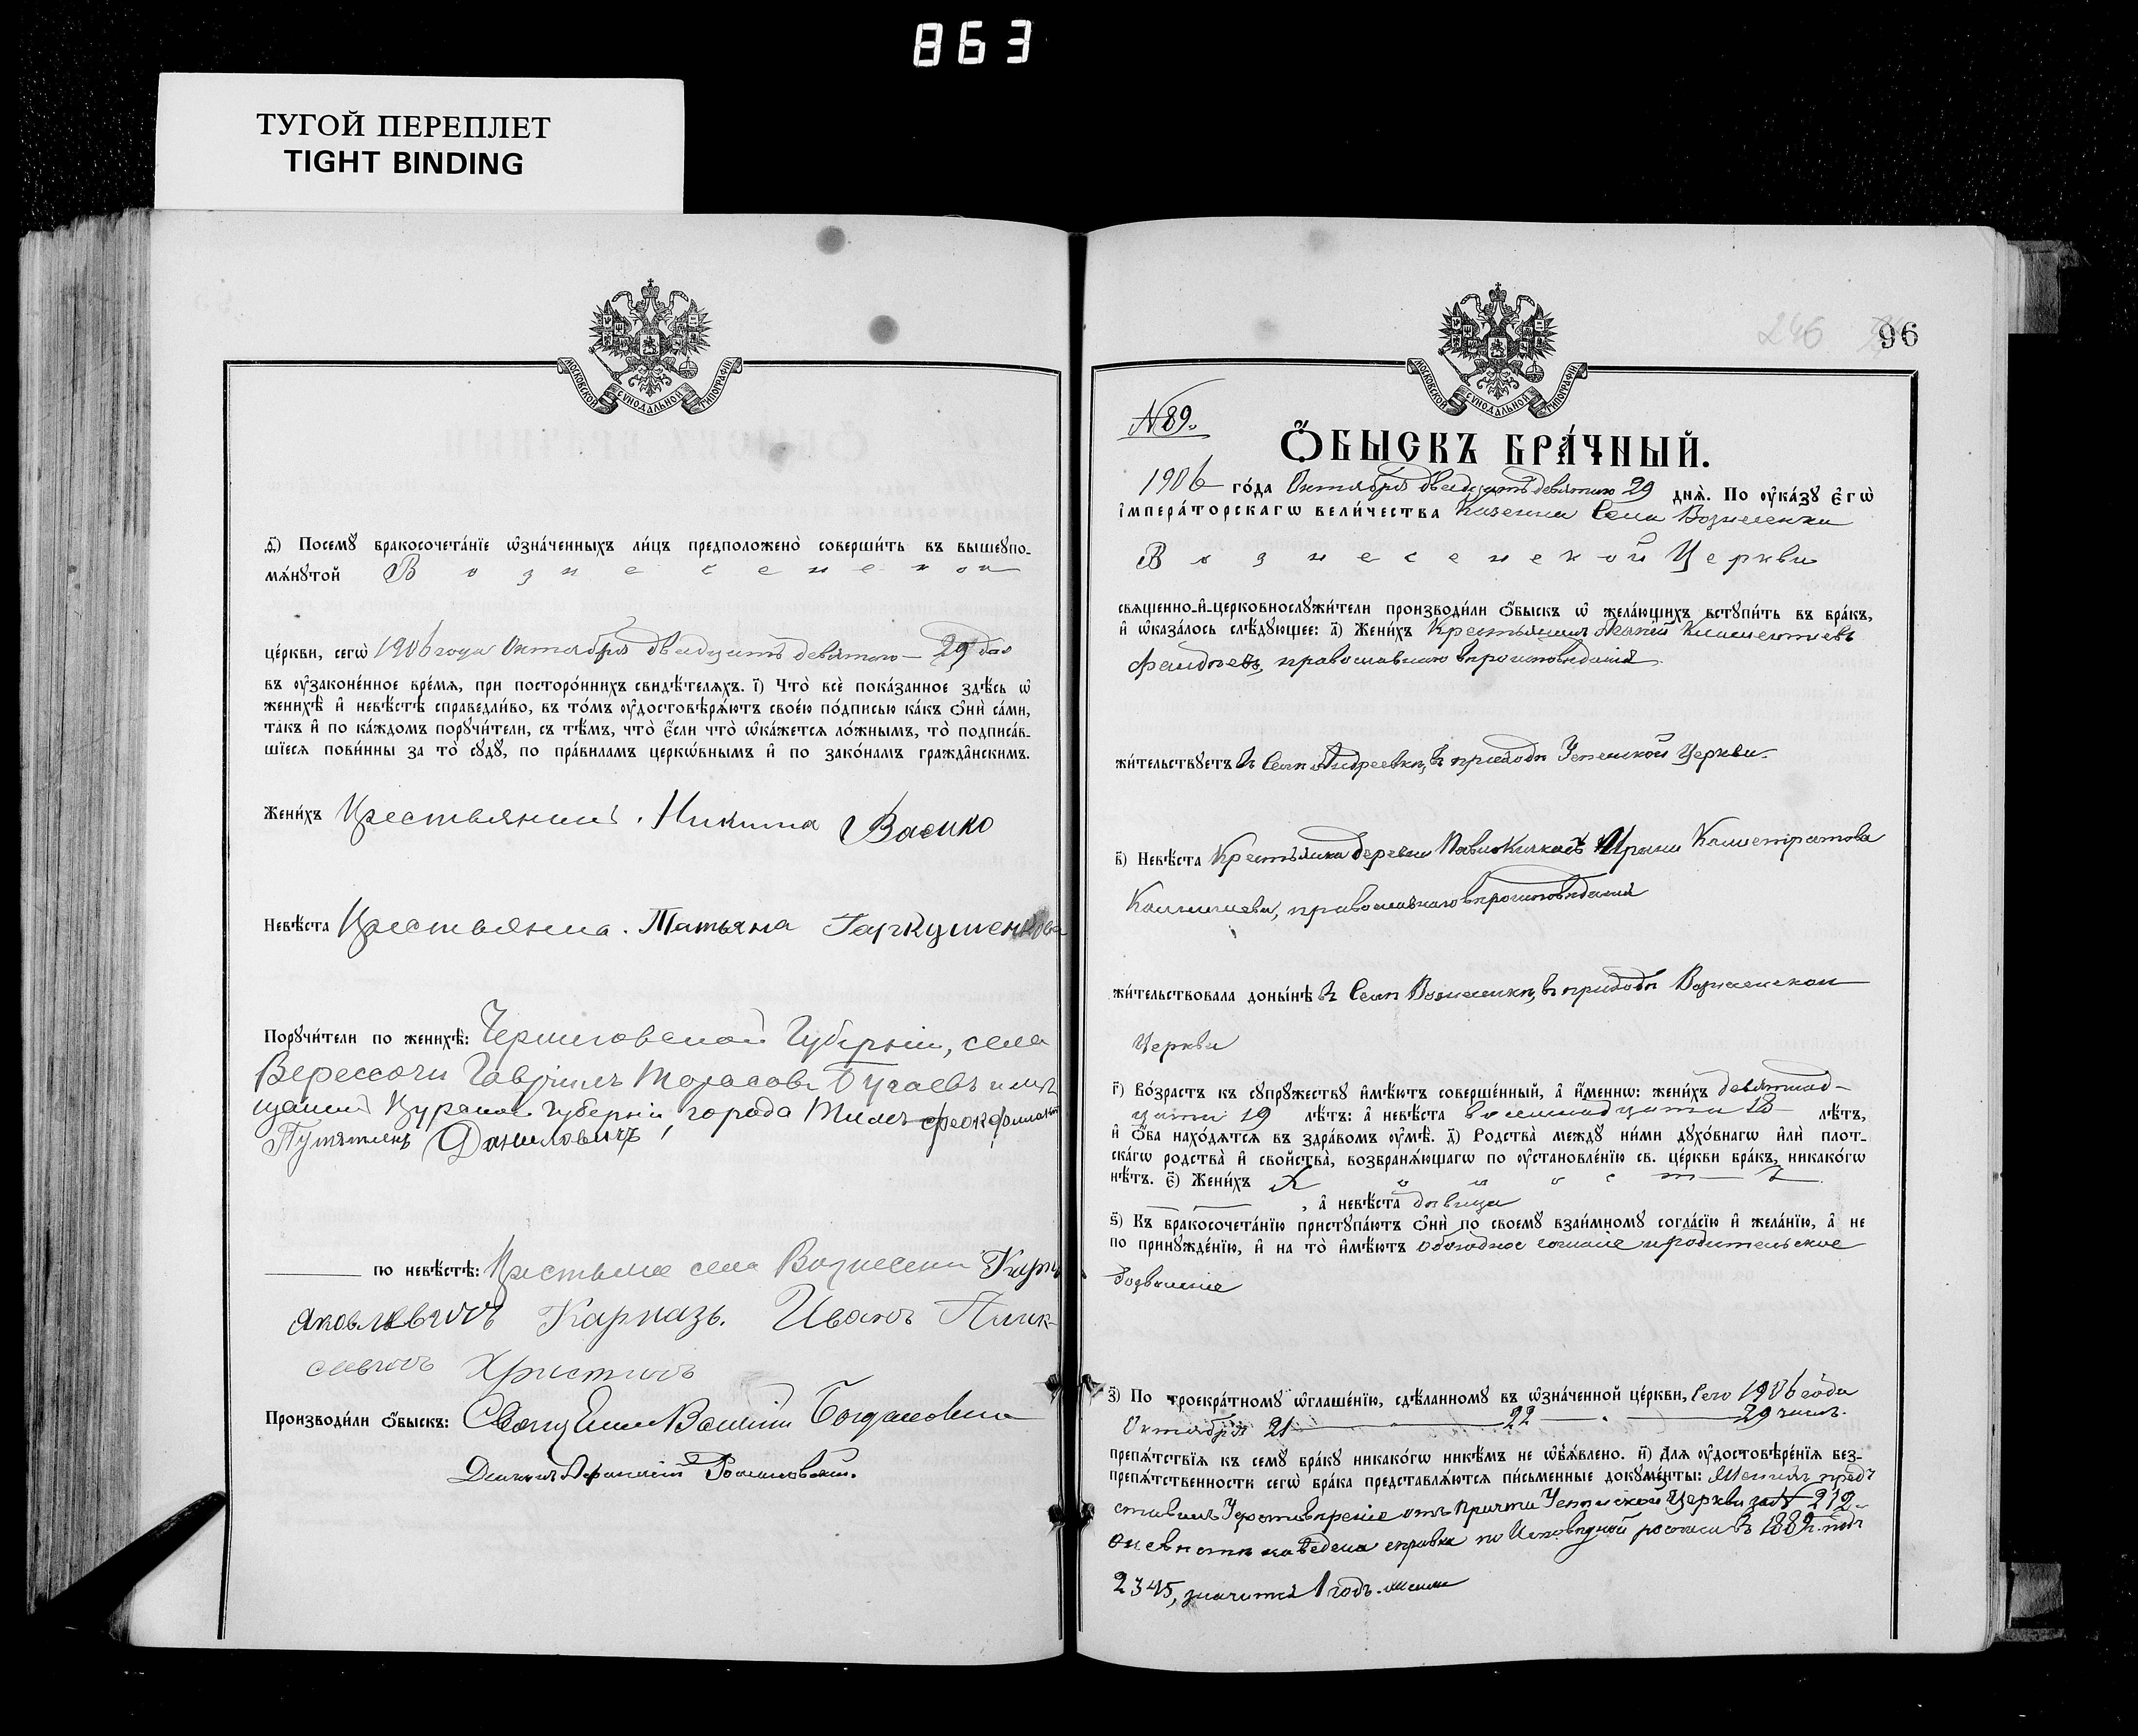 863
ТУГОЙ ПЕРЕПЛЕТ
TIGHT BINDING
МОСКОВСКОЙ СѴНОДАЛЬНОЙ ТИПОГРАФІИ
Посемꙋ̀ бракосочета́нїе ѡ҆зна́ченныхъ ли́цъ предположено̀ соверши́ть въ вышеꙋпо-
мѧ́нꙋтой Вознесенской
це́ркви, сегѡ̀ 1906 года Октября двадцать девятого 29 дня
въ ᲂу҆зако́ненное вре́мѧ, при посторо́ннихъ свидѣ́телѧхъ. і҃) Что̀ всѐ пока́занное здѣ́сь ѡ҆
женихѣ̀ и҆ невѣ́стѣ справедли́во, въ то́мъ ᲂу҆достовѣрѧ́ютъ свое́ю по́дписью ка́къ ѻ҆нѝ са́ми,
та́къ и҆ по ка́ждомъ порꙋчи́тели, съ тѣ́мъ, что̀ є҆́сли что̀ ѡ҆ка́жетсѧ ло́жнымъ, то̀ подписа́в-
шїесѧ пови́нны за то̀ сꙋдꙋ̀, по пра́виламъ церкѡ́внымъ и҆ по зако́намъ гражда̑нскимъ.
Жени́хъ Крестьянинъ. Никита Васько
Невѣ́ста Крестьянка. Татьяна Гаркушенкова
Порꙋчи́тели по женихѣ̀: Черниговской Губерніи, села
Верессочи Гавріилъ Тарасовъ Бугаевъ и мѣ-
щанинъ Курской губерніи, города Тимъ
Даниловичъ
по невѣ́стѣ: Крестьяне села Вознесенки
Яковлевичъ Карназъ. Иванъ
Христичъ
Производи́ли ѻ҆́быскъ: Священникъ Василій Богдановичъ
Романовскій.
246 96
№ 89.
Ѻ҆́БЫСКЪ БРА́ЧНЫЙ.
1906 го́да Октября двадцать девятого 29 днѧ̀. По ᲂу҆ка́зꙋ є҆гѡ̀
і҆мпера́торскагѡ вели́чества Села Вознесенки
Вознесенской Церкви
свѧщенно-и҆-церковнослꙋжи́тели производи́ли ѻ҆́быскъ ѡ҆ жела́ющихъ встꙋпи́ть въ бра́къ,
и҆ ѡ҆каза́лось слѣ́дꙋющее: а҃) Жени́хъ Крестьянинъ Климентіевъ
православнаго вѣроисповѣданія
жи́тельствꙋетъ въ Селѣ Андреевкѣ, въ приходѣ Успенской Церкви.
в҃) Невѣ́ста Крестьянка деревни Павло-Кичкасъ Ирина Калистратова
православнаго вѣроисповѣданія
жи́тельствовала доны́нѣ въ Селѣ Вознесенкѣ, въ приходѣ Вознесенской
Церкви
г҃) Во́зрастъ къ сꙋпрꙋ́жествꙋ и҆мѣ́ютъ соверше́нный, а҆ и҆́меннѡ: жени́хъ девятнад-
цати 19 лѣ́тъ: а҆ невѣ́ста восемнадцати 18 лѣ́тъ,
и҆ ѻ҆́ба нахо́дѧтсѧ въ здра́вомъ ᲂу҆мѣ̀. д҃) Родства̀ междꙋ̀ ни́ми дꙋхо́внагѡ и҆лѝ плот-
ска́гѡ родства̀ и҆ сво́йства̀, возбранѧ́ющагѡ по ᲂу҆становле́нїю св. це́ркви бра́къ, никако́гѡ
нѣ́тъ. є҃) Жени́хъ Холостъ
, а҆ невѣ́ста дѣвица
ѕ҃) Къ бракосочета́нїю пристꙋпа́ютъ ѻ҆нѝ по своемꙋ̀ взаи́мномꙋ согла́сїю и҆ жела́нїю, а҆ не
по принꙋжде́нїю, и҆ на то̀ и҆мѣ́ютъ обоюдное согласіе и родительское
дозволеніе
з҃) По троекра́тномꙋ ѡ҆глаше́нїю, сдѣ́ланномꙋ въ ѡ҆зна́ченной це́ркви, сего 1906 года
Октября 21 22 29 чиселъ.
препѧ́тствїѧ къ семꙋ̀ бра́кꙋ никако́гѡ никѣ́мъ не ѡ҆б̾ѧ́влено. и҃) Длѧ ᲂу҆достовѣре́нїѧ без-
препѧ́тственности сегѡ̀ бра́ка представлѧ́ютсѧ пи́сьменные докꙋме́нты: Женихъ пред-
ставилъ Удостовѣреніе отъ Причта Успенской Церкви за № 212
О невѣстѣ наведена справка по Исповѣдной росписи въ 1889 г. подъ
2345, значится 1 годъ.